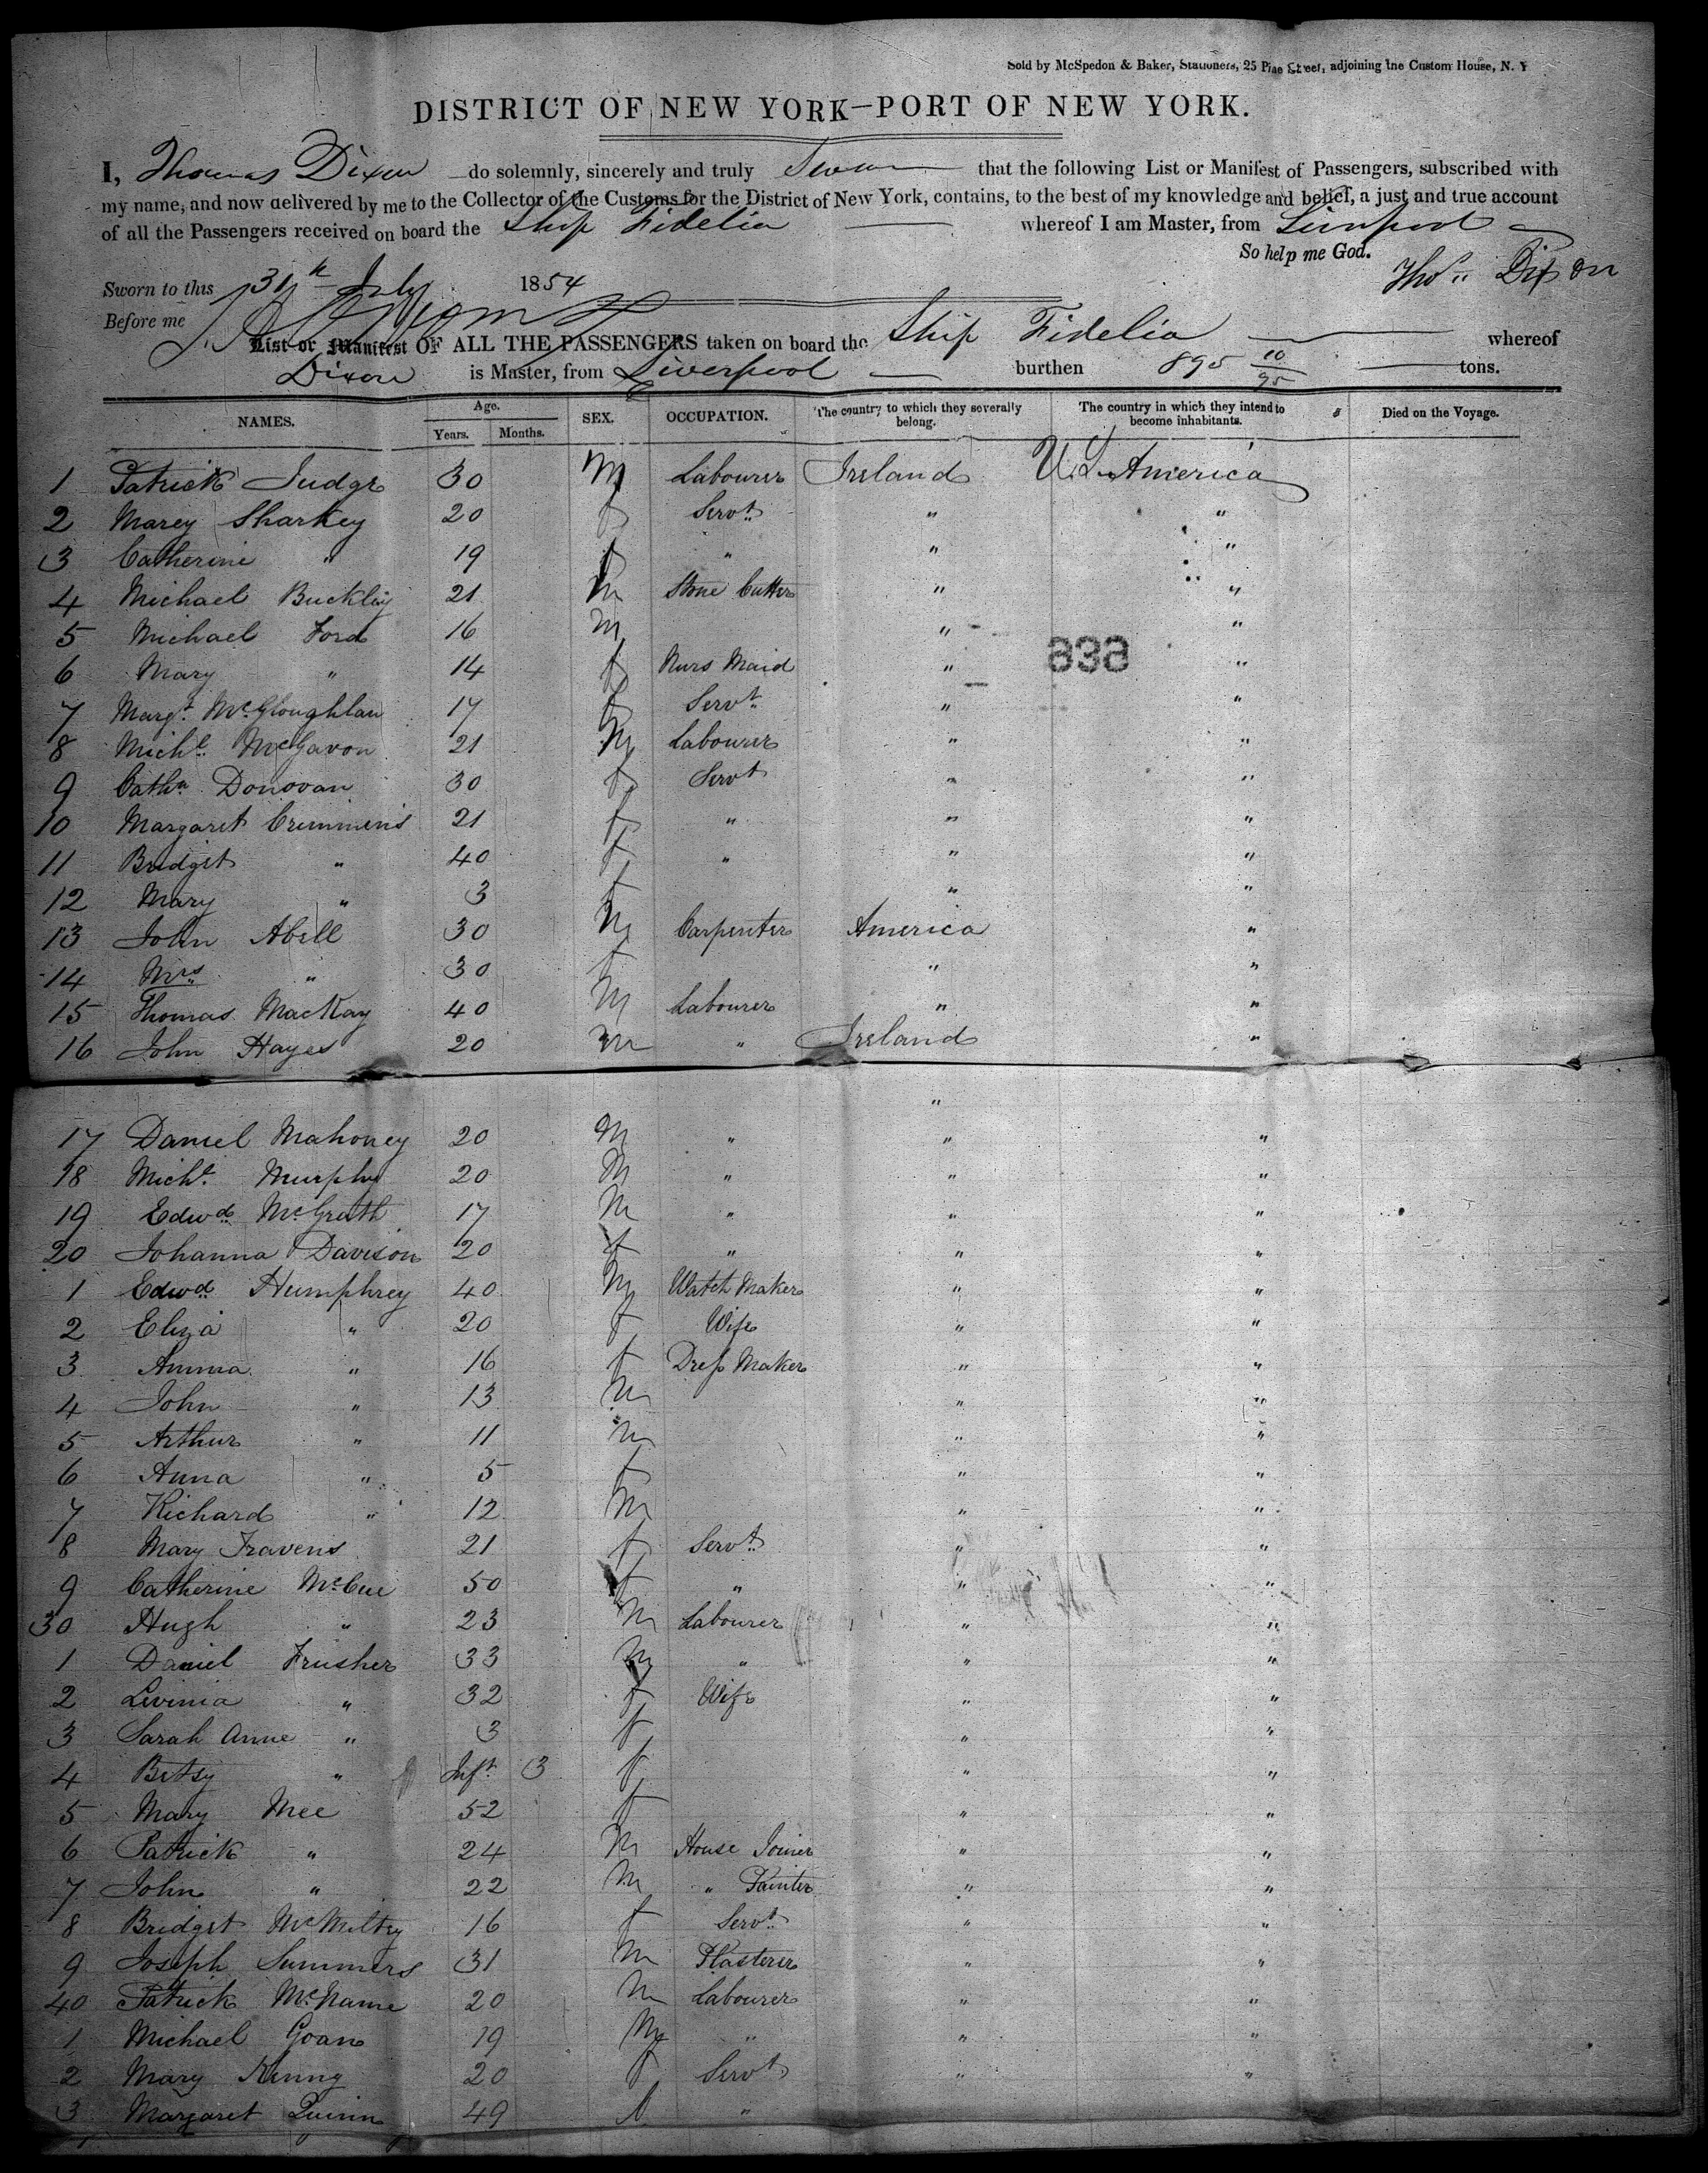 Sold by McSpedon & Baker, Stationers, 25 Pine Street, adjoining the Custom House, N. Y
DISTRICT OF NEW YORK—PORT OF NEW YORK.
I, Thomas Dixon do solemnly, sincerely and truly Swear that the following List or Manifest of Passengers, subscribed with
my name, and now delivered by me to the Collector of the Customs for the District of New York, contains, to the best of my knowledge and belief, a just and true account
of all the Passengers received on board the Ship Fidelia whereof I am Master, from Liverpool
So help me God.
Sworn to this 31 July 1854 Thos. Dixon
Before me
List or Manifest OF ALL THE PASSENGERS taken on board the Ship Fidelia whereof
Dixon is Master, from Liverpool burthen 895 10/95 tons.
NAMES. Age. Years. Months. SEX. OCCUPATION. The country to which they severally belong. The country in which they intend to become inhabitants. Died on the Voyage.
1 Patrick Judge 30 M Labourer Ireland U.S. America
2 Marey Sharkey 20 f Servt " "
3 Catherine " 19 f " " "
4 Michael Buckley 21 M Stone Cutter " "
5 Michael Ford 16 M " "
838
6 Mary " 14 f Nurs Maid " "
7 Margt. McGloughlan 17 f Servt " "
8 Michl. McGavon 21 M Labourer " "
9 Cathn Donovan 30 f Servt " "
10 Margaret Cremmens 21 f " " "
11 Bridget " 40 f " " "
12 Mary " 3 f " "
13 John Abell 30 M Carpenter America "
14 Mrs " 30 f " "
15 Thomas MacKay 40 M Labourer " "
16 John Hayes 20 M " Ireland "
"
17 Daniel Mahoney 20 M " " "
18 Michl. Murphy 20 M " " "
19 Edwd. McGrath 17 M " " "
20 Johanna Davison 20 f " " "
1 Edwd. Humphrey 40 M Watch Maker " "
2 Eliza " 20 f Wife " "
3 Amma " 16 f Dress Maker " "
4 John " 13 M " "
5 Arthur " 11 M " "
6 Anna " 5 f " "
7 Richard " 12 M " "
8 Mary Travens 21 f Servt. " "
9 Catherine McCue 50 f " " "
30 Hugh " 23 M Labourer " "
1 Daniel Frusher 33 M " " "
2 Levinia " 32 f Wife " "
3 Sarah Anne " 3 f " "
4 Betsy " Inft. 3 f " "
5 Mary Mee 52 f " "
6 Patrick " 24 M House Joiner " "
7 John " 22 M " Painter " "
8 Bridget McMiltey 16 f Servt. " "
9 Joseph Summers 31 M Plasterer " "
40 Patrick McName 20 M Labourer " "
1 Michael Goan 19 M " " "
2 Mary Kenny 20 f Servt " "
3 Margaret Quinn 49 f "